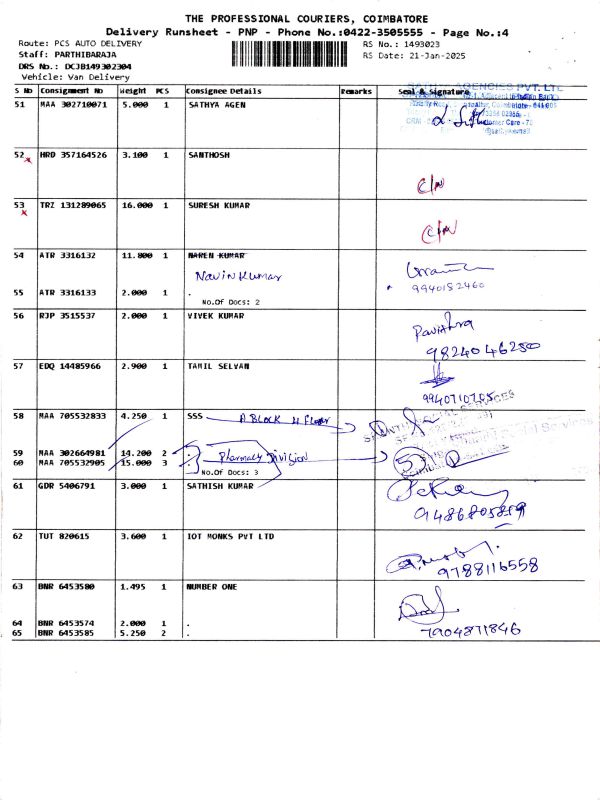 THE PROFESSIONAL COURIERS, COIMBATORE
Delivery Runsheet - PNP - Phone No.:0422-3505555 - Page No.:4
Route: PCS AUTO DELIVERY RS No.: 1493023
Staff: PARTHIBARAJA RS Date: 21-Jan-2025
DRS No.: DCJB149302304
Vehicle: Van Delivery
S No Consignment No Weight PCS Consignee Details Remarks Seal & Signature
51 MAA 302710071 5.000 1 SATHYA AGEN
AGENCIES PVT. LTD
52 HRD 357164526 3.100 1 SANTHOSH
C/N
53 TRZ 131289065 16.000 1 SURESH KUMAR
C/N
54 ATR 3316132 11.800 1 NAREN KUMAR
Navin Kumar
9940152460
55 ATR 3316133 2.000 1 .
No.Of Docs: 2
56 RJP 3515537 2.000 1 VIVEK KUMAR
Pavithra
9824046250
57 EDQ 14485966 2.900 1 TAMIL SELVAN
9940710705
58 MAA 705532833 4.250 1 SSS A BLOCK 4 Floor
59 MAA 302664981 14.200 2 . Pharmacy Division
60 MAA 705532905 15.000 3 .
No.Of Docs: 3
61 GDR 5406791 3.000 1 SATHISH KUMAR
9486805819
62 TUT 820615 3.600 1 IOT MONKS PVT LTD
9788116558
63 BNR 6453580 1.495 1 NUMBER ONE
64 BNR 6453574 2.000 1 .
65 BNR 6453585 5.250 2 .
7904871846